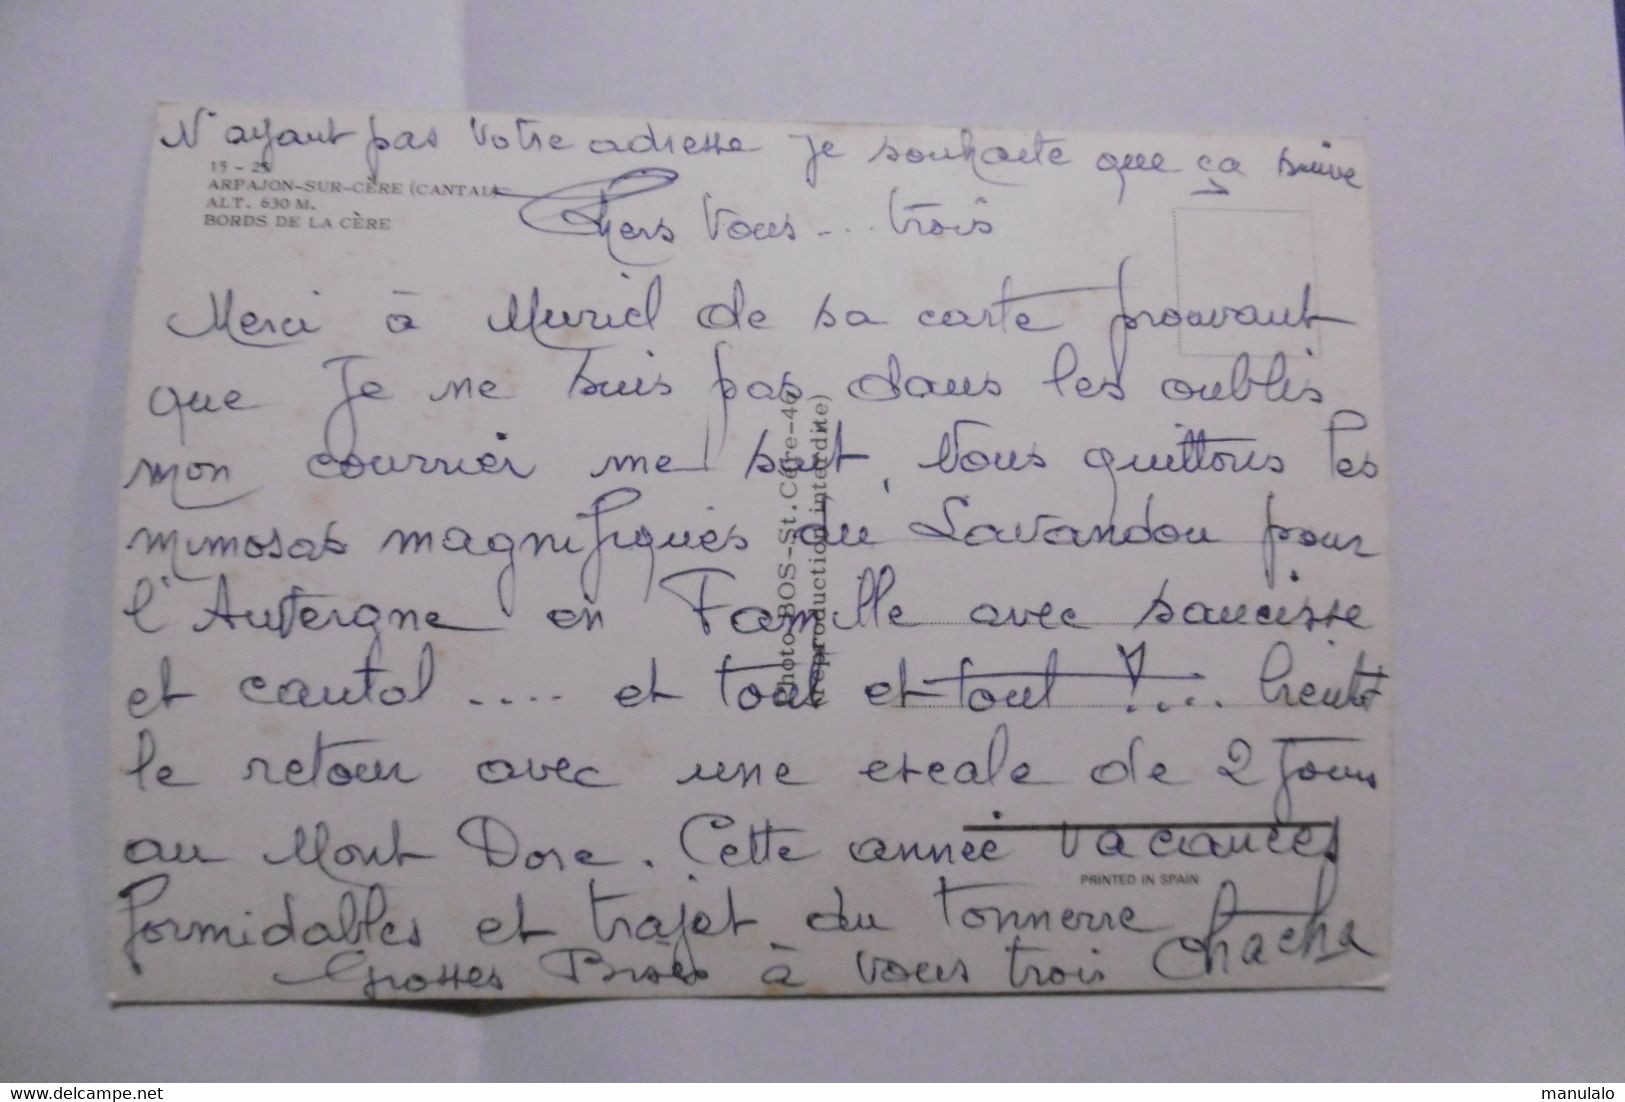 N'ayant pas votre adresse je souhaite que ça suive
15 - 25
ARPAJON-SUR-CÈRE (CANTAL)
ALT. 630 M.
BORDS DE LA CÈRE
Chers Vous... trois
Merci à Muriel de sa carte prouvant
que Je ne suis pas dans les oublis
mon courrier me suit, Nous quittons les
mimosas magnifiques du Lavandou pour
l'Auvergne en Famille avec saucisse
et cantal .... et tout et tout !....
le retour avec une escale de 2 Jours
au Mont Dore. Cette année vacances
formidables et trajet du tonnerre
Grosses Bises à vous trois Chacha
Photo BOS-St. Céré-46
(reproduction interdite)
PRINTED IN SPAIN
manulalo